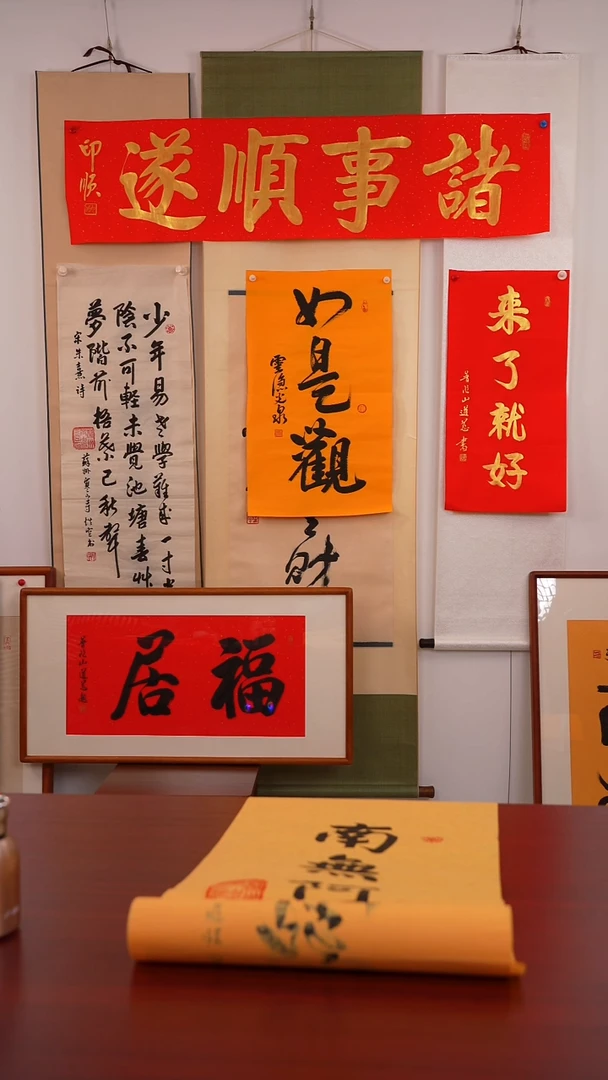 諸事順遂
印順
少年易老學難成一寸
陰不可輕未覺池塘春艸
夢階前梧葉已秋聲
宋朱熹诗
如是觀
来了就好
普陀山道慈書
財
福居
南無阿